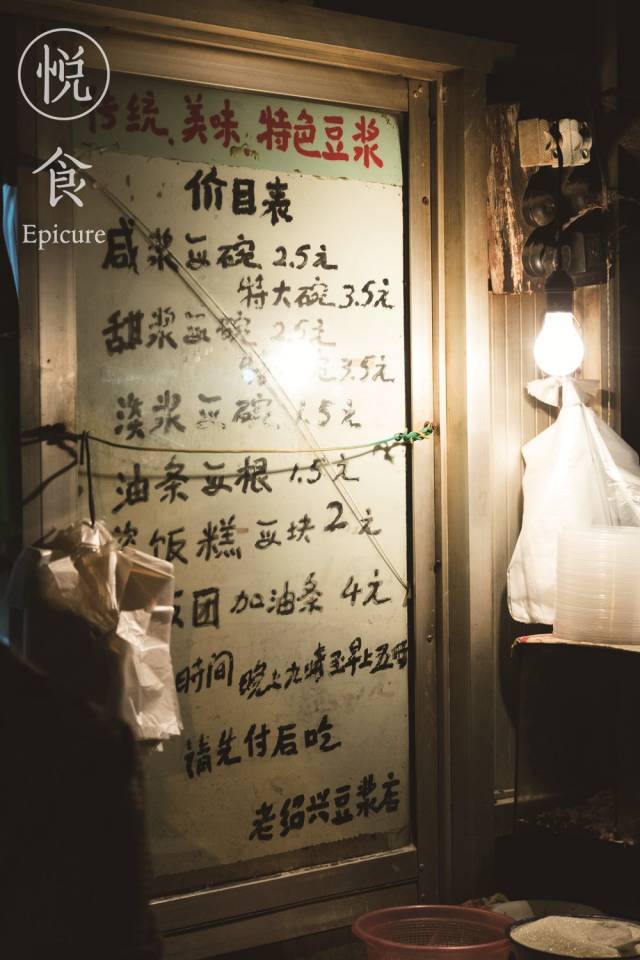 悦
食
Epicure
传统、美味、特色豆浆
价目表
咸浆每碗 2.5元
特大碗 3.5元
甜浆每碗 2.5元
碗 3.5元
淡浆每碗 1.5元
油条每根 1.5元
饭糕每块 2元
饭团加油条 4元
时间 晚上九
请先付后吃
老绍兴豆浆店